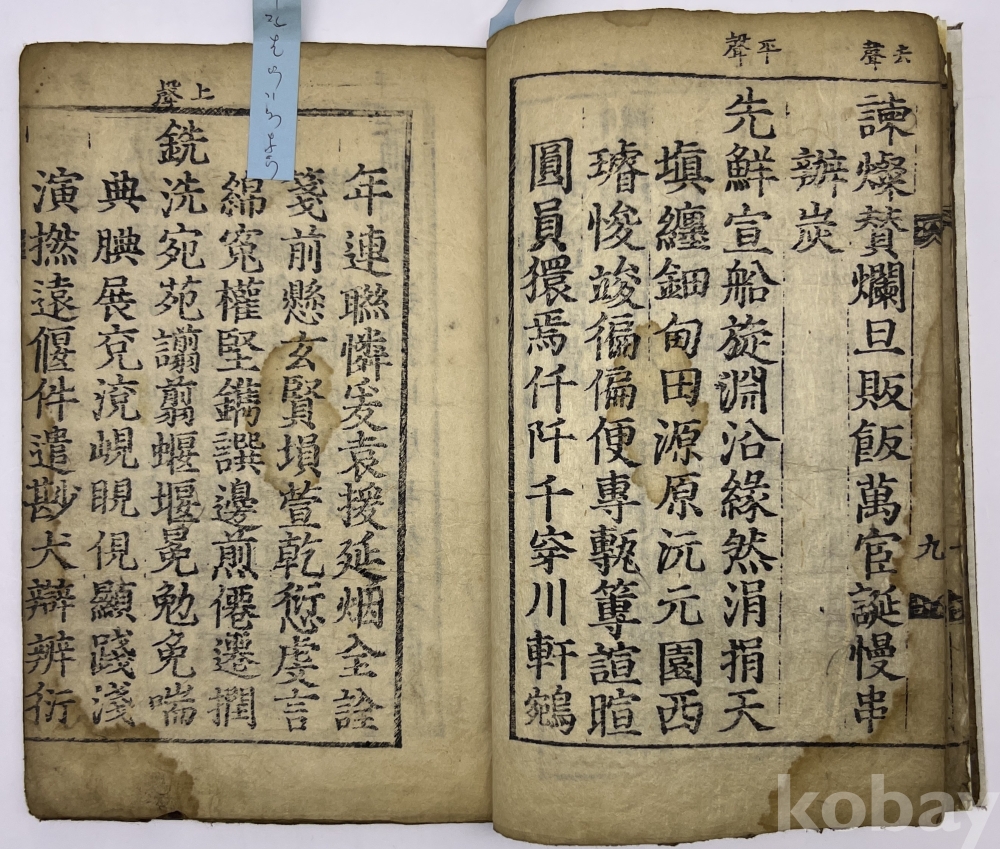 去聲
諫燦賛爛旦販飯萬宦誕慢串
辦炭
平聲
先鮮宣船旋淵沿緣然涓捐天
塡纏鈿甸田源原沅元園西
璿悛竣徧偏便專甎篿諠暄
圓員獧焉仟阡千穿川軒鵷
九
年連聯憐爰袁援延烟全詮
箋前懸玄賢塤萱乾愆虔言
綿寃權堅鐫譔邊煎僊遷撋
上聲
銑洗宛苑謭翦蝘堰冕勉免喘
典腆展兗流峴睍俔顯踐淺
演撚遠偃件遣尠犬辯辨衍
kobay